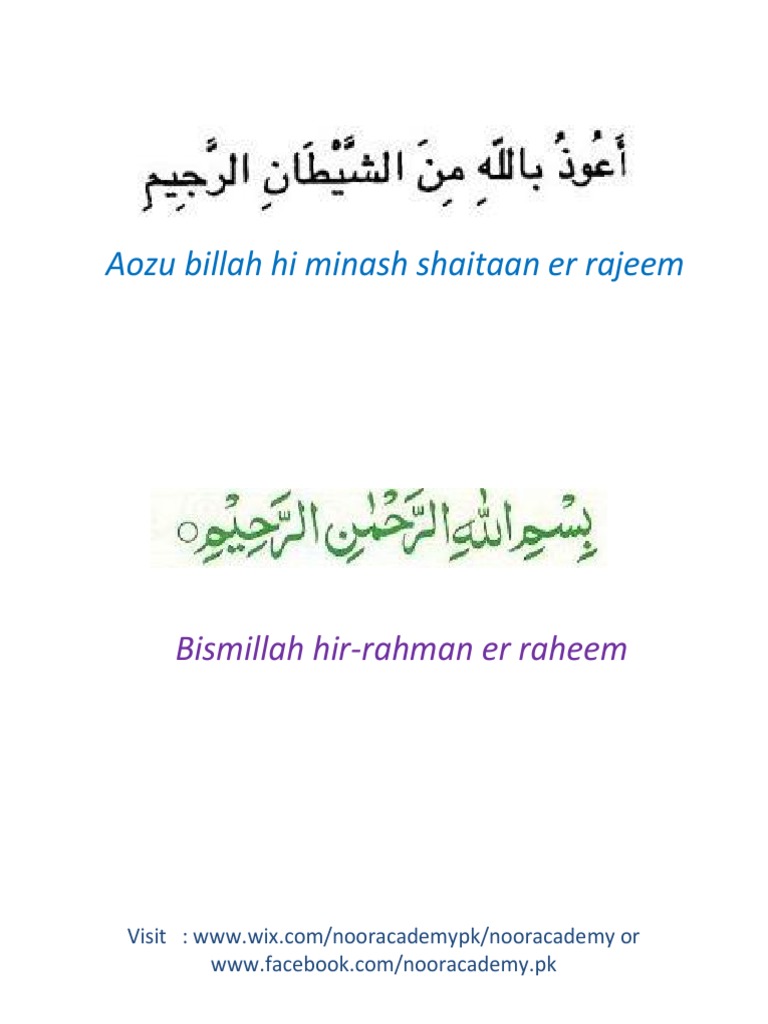 أَعُوذُ بِاللَّهِ مِنَ الشَّيْطَانِ الرَّجِيمِ
Aozu billah hi minash shaitaan er rajeem
بِسْمِ اللهِ الرَّحْمٰنِ الرَّحِيْمِ ○
Bismillah hir-rahman er raheem
Visit : www.wix.com/nooracademypk/nooracademy or
www.facebook.com/nooracademy.pk